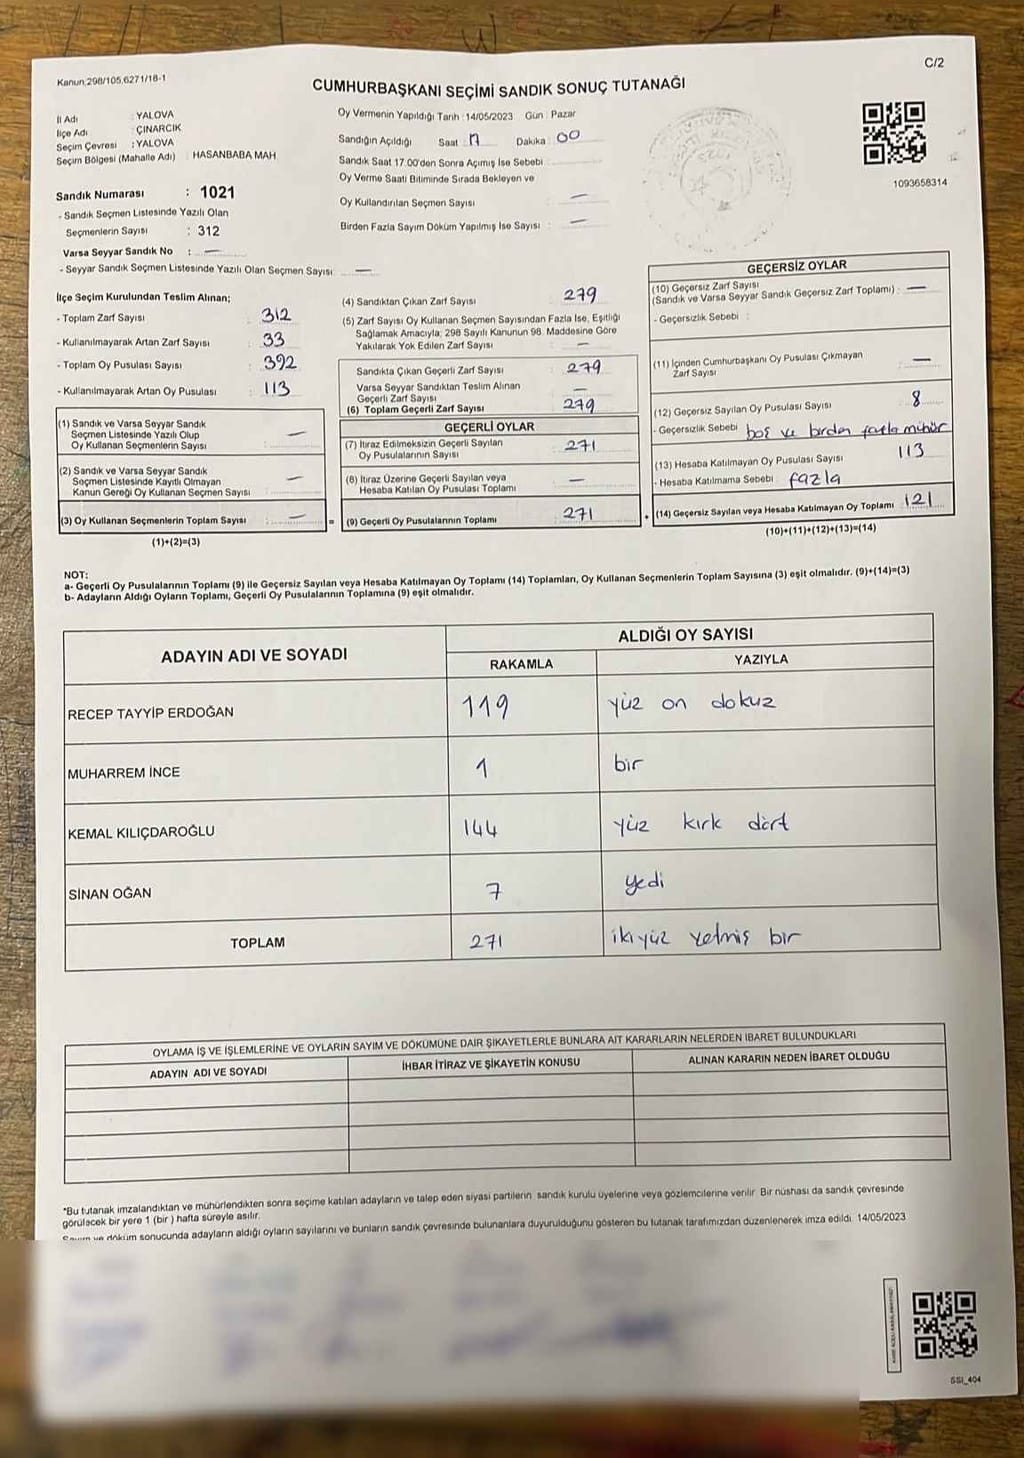 Kanun 298/105.6271/18-1
C/2
CUMHURBAŞKANI SEÇİMİ SANDIK SONUÇ TUTANAĞI
İl Adı : YALOVA
İlçe Adı : ÇINARCIK
Seçim Çevresi : YALOVA
Seçim Bölgesi (Mahalle Adı) : HASANBABA MAH
Sandık Numarası : 1021
- Sandık Seçmen Listesinde Yazılı Olan
Seçmenlerin Sayısı : 312
Varsa Seyyar Sandık No : —
- Seyyar Sandık Seçmen Listesinde Yazılı Olan Seçmen Sayısı : —
Oy Vermenin Yapıldığı Tarih :14/05/2023 Gün : Pazar
Sandığın Açıldığı Saat : 17 Dakika : 00
Sandık Saat 17.00'den Sonra Açımış İse Sebebi :
Oy Verme Saati Bitiminde Sırada Bekleyen ve
Oy Kullandırılan Seçmen Sayısı : —
Birden Fazla Sayım Döküm Yapılmış İse Sayısı : —
1093658314
İlçe Seçim Kurulundan Teslim Alınan;
- Toplam Zarf Sayısı : 312
- Kullanılmayarak Artan Zarf Sayısı : 33
- Toplam Oy Pusulası Sayısı : 392
- Kullanılmayarak Artan Oy Pusulası : 113
(1) Sandık ve Varsa Seyyar Sandık
Seçmen Listesinde Yazılı Olup
Oy Kullanan Seçmenlerin Sayısı : —
(2) Sandık ve Varsa Seyyar Sandık
Seçmen Listesinde Kayıtlı Olmayan
Kanun Gereği Oy Kullanan Seçmen Sayısı : —
(3) Oy Kullanan Seçmenlerin Toplam Sayısı : — =
(1)+(2)=(3)
(4) Sandıktan Çıkan Zarf Sayısı : 279
(5) Zarf Sayısı Oy Kullanan Seçmen Sayısından Fazla İse, Eşitliği
Sağlamak Amacıyla; 298 Sayılı Kanunun 98. Maddesine Göre
Yakılarak Yok Edilen Zarf Sayısı : —
Sandıkta Çıkan Geçerli Zarf Sayısı : 279
Varsa Seyyar Sandıktan Teslim Alınan
Geçerli Zarf Sayısı : —
(6) Toplam Geçerli Zarf Sayısı : 279
GEÇERLİ OYLAR
(7) İtiraz Edilmeksizin Geçerli Sayılan
Oy Pusulalarının Sayısı : 271
(8) İtiraz Üzerine Geçerli Sayılan veya
Hesaba Katılan Oy Pusulası Toplamı : —
(9) Geçerli Oy Pusulalarının Toplamı : 271 +
GEÇERSİZ OYLAR
(10) Geçersiz Zarf Sayısı
(Sandık ve Varsa Seyyar Sandık Geçersiz Zarf Toplamı) : —
- Geçersizlik Sebebi :
(11) İçinden Cumhurbaşkanı Oy Pusulası Çıkmayan
Zarf Sayısı : —
(12) Geçersiz Sayılan Oy Pusulası Sayısı : 8
- Geçersizlik Sebebi : boş ve birden fazla mühür
(13) Hesaba Katılmayan Oy Pusulası Sayısı : 113
- Hesaba Katılmama Sebebi : fazla
(14) Geçersiz Sayılan veya Hesaba Katılmayan Oy Toplamı : 121
(10)+(11)+(12)+(13)=(14)
NOT:
a- Geçerli Oy Pusulalarının Toplamı (9) ile Geçersiz Sayılan veya Hesaba Katılmayan Oy Toplamı (14) Toplamları, Oy Kullanan Seçmenlerin Toplam Sayısına (3) eşit olmalıdır. (9)+(14)=(3)
b- Adayların Aldığı Oyların Toplamı, Geçerli Oy Pusulalarının Toplamına (9) eşit olmalıdır.
ADAYIN ADI VE SOYADI
ALDIĞI OY SAYISI
RAKAMLA YAZIYLA
RECEP TAYYİP ERDOĞAN 119 yüz on dokuz
MUHARREM İNCE 1 bir
KEMAL KILIÇDAROĞLU 144 yüz kırk dört
SİNAN OĞAN 7 yedi
TOPLAM 271 ikiyüz yetmiş bir
OYLAMA İŞ VE İŞLEMLERİNE VE OYLARIN SAYIM VE DÖKÜMÜNE DAİR ŞİKAYETLERLE BUNLARA AİT KARARLARIN NELERDEN İBARET BULUNDUKLARI
ADAYIN ADI VE SOYADI İHBAR İTİRAZ VE ŞİKAYETİN KONUSU ALINAN KARARIN NEDEN İBARET OLDUĞU
*Bu tutanak imzalandıktan ve mühürlendikten sonra seçime katılan adayların ve talep eden siyasi partilerin sandık kurulu üyelerine veya gözlemcilerine verilir. Bir nüshası da sandık çevresinde
görülecek bir yere 1 (bir ) hafta süreyle asılır.
Sayım ve döküm sonucunda adayların aldığı oyların sayılarını ve bunların sandık çevresinde bulunanlara duyurulduğunu gösteren bu tutanak tarafımızdan düzenlenerek imza edildi. 14/05/2023
SSI_404